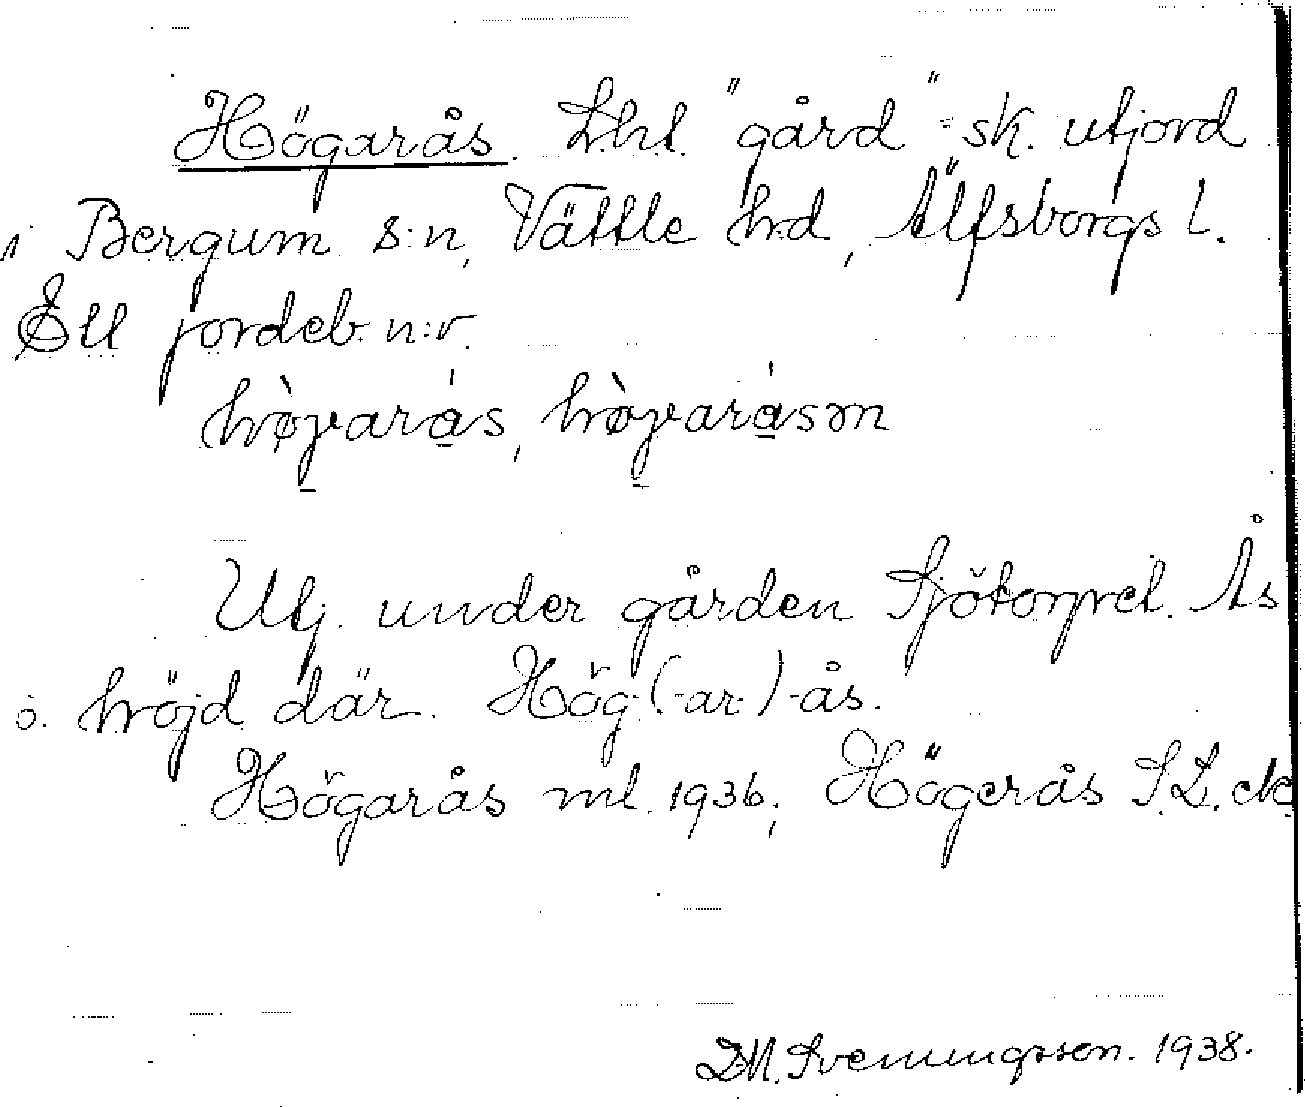 Högarås. Lht. "gård" = sk. utjord
i Bergum s:n, Vättle hrd, Älfsborgs l.
Ett jordeb. n:r.
hø̀garás, hø̀garásən
Utj. under gården Sjötorpet. Ås
o. höjd där. Hög-(-ar-)-ås.
Högarås ml. 1936; Högerås S.L. etc
D.M. Svenningsson. 1938.